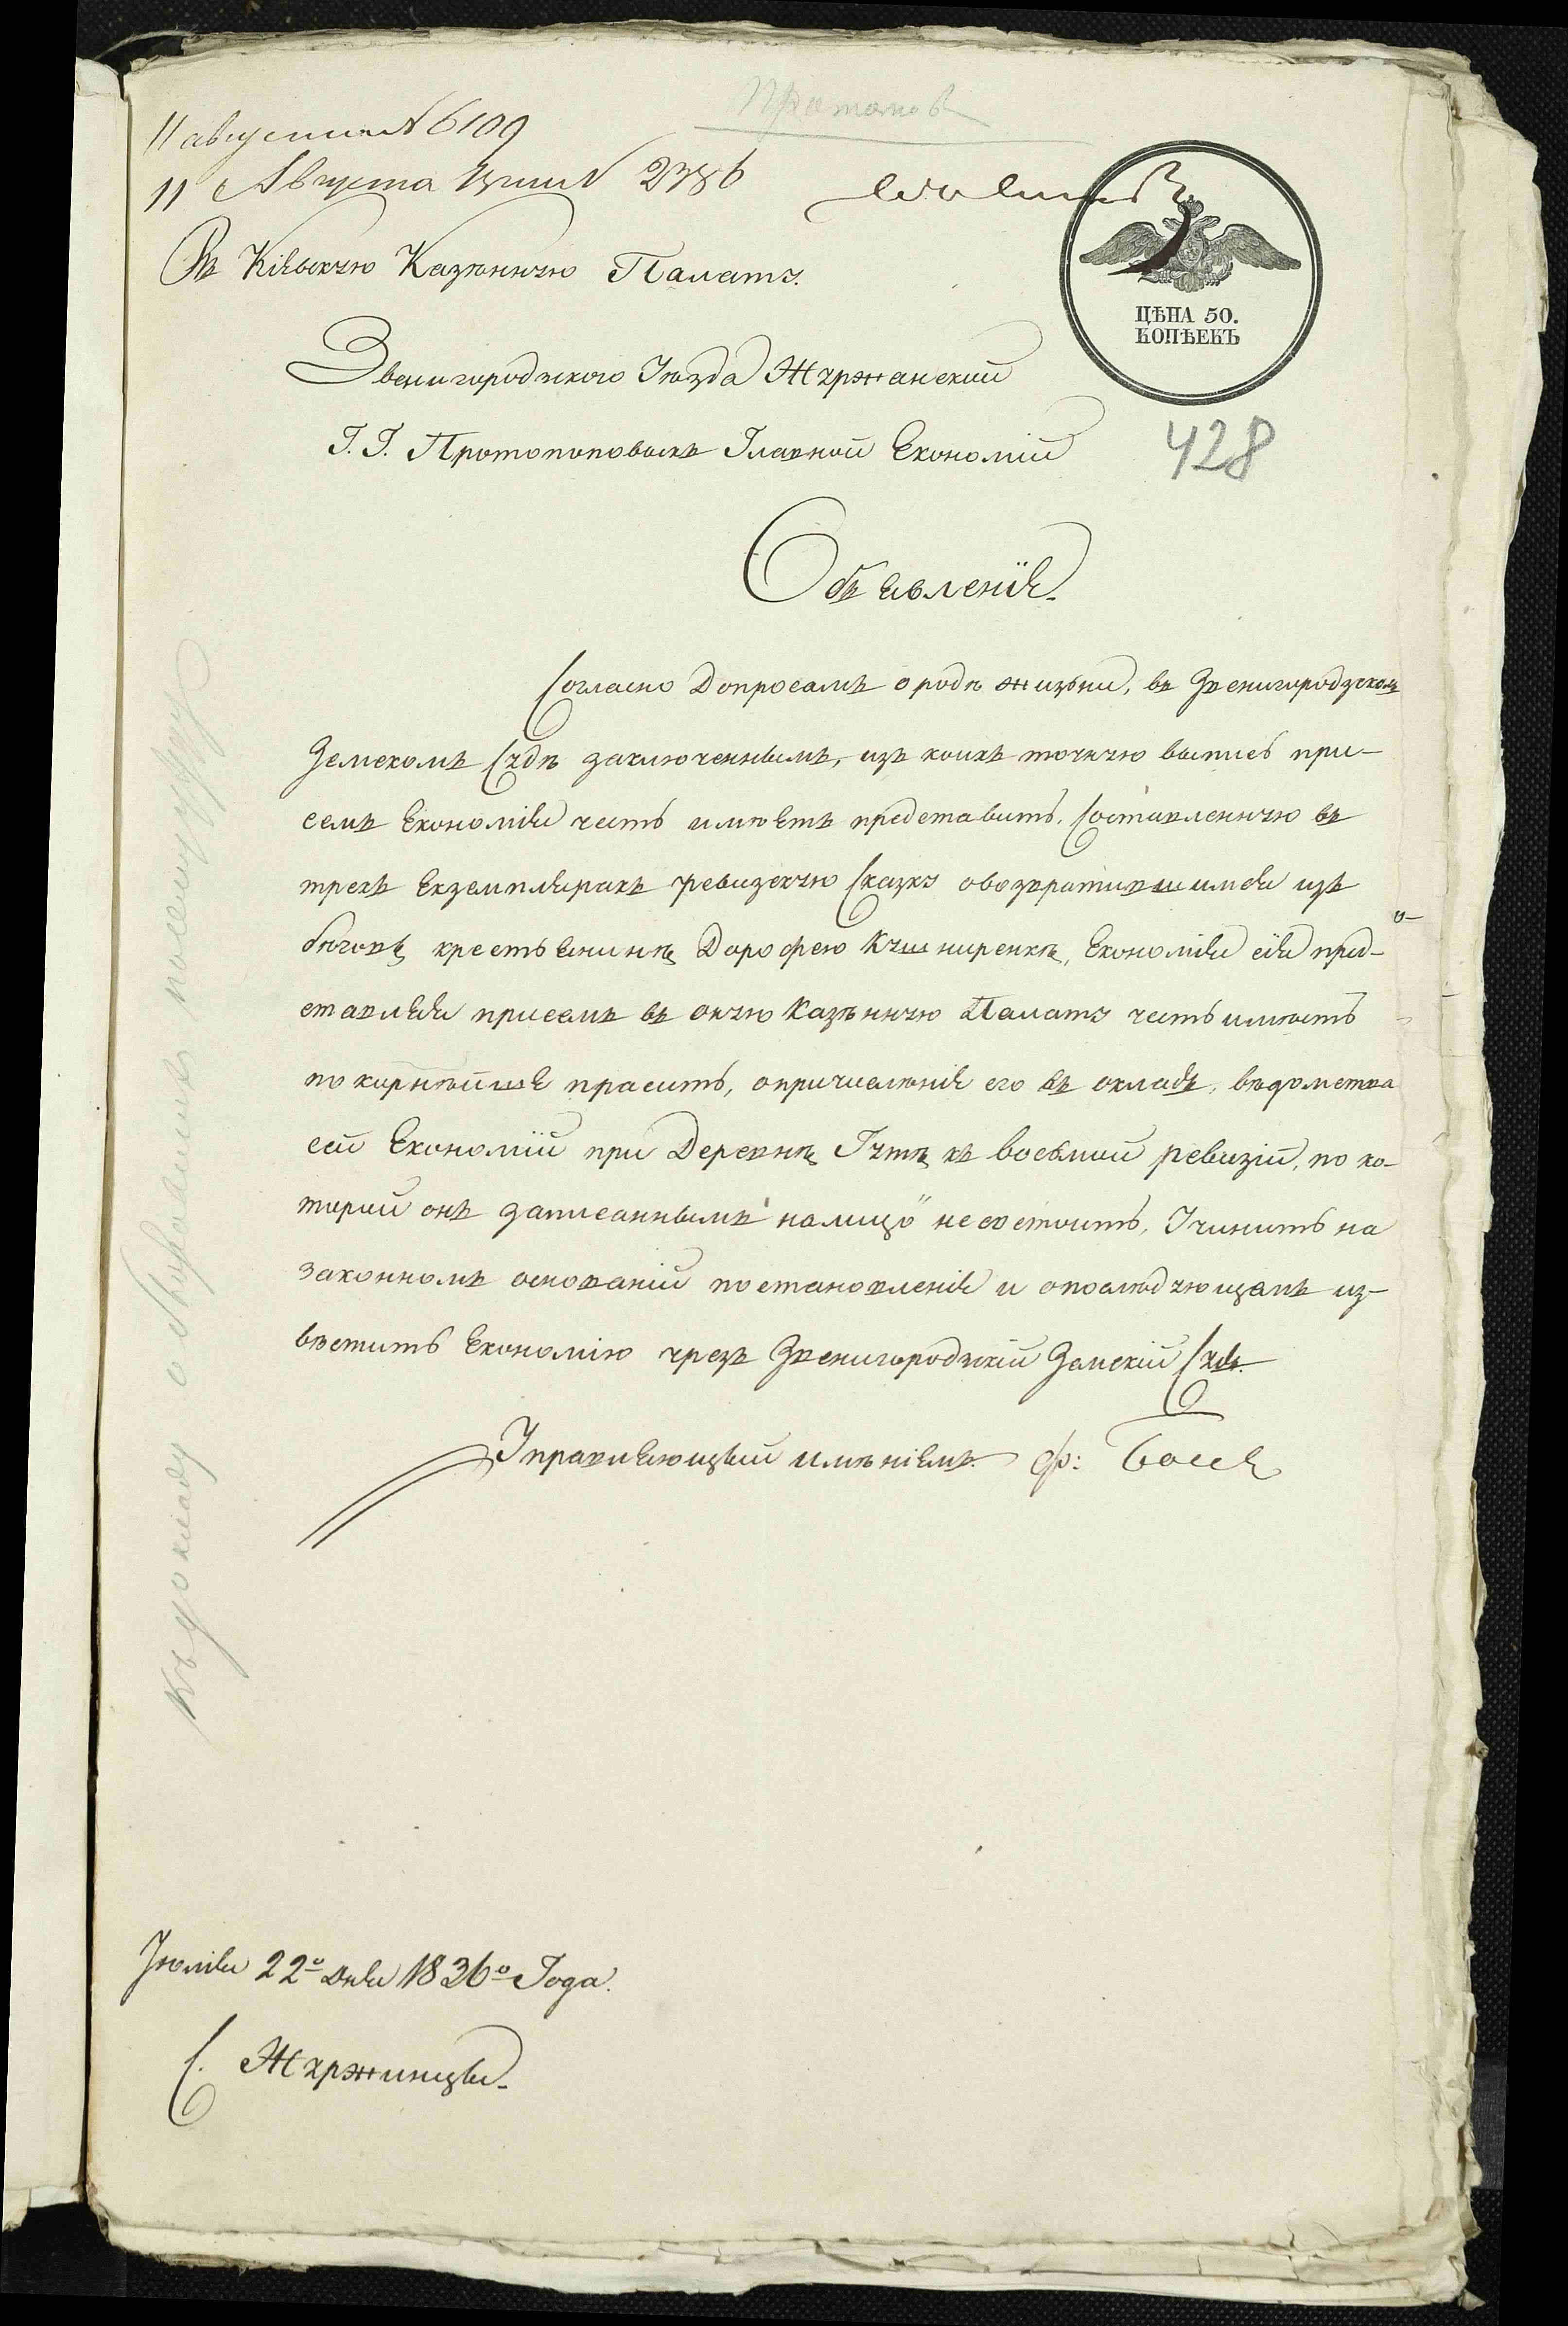 11 августа № 6109
11 Августа № 2386
Въ Кіевскую Казенную Палату.
ЦѢНА 50.
КОПѢЕКЪ
Звенигородского Уѣзда Журжанской
Г. Г. Протопоповыхъ Главной Економіи
428
Объявленіе.
Согласно Допросамъ о родѣ жизьни, въ Звенигородзскомъ
Земскомъ Судѣ заключеннымъ, изъ коихъ точную выпись при-
семъ Економія честь имѣетъ представить, Составленную въ
трехъ Екземплярахъ ревизскую Сказку о возвратившимся изъ
бѣговъ крестьянинѣ Дорофею Кушниренкѣ, Економія сія пред-
ставляя присемъ въ оную Казѣнную Палату честь имѣетъ
покорнѣйше прасить, о причисленіе его въ окладъ, вѣдомства
сей Економіи при Деревнѣ Гутѣ къ восьмой ревизіи, по ко-
торой онъ записаннымъ на лицо не состоитъ, Учинить на
законномъ основаніи постановленіе и о послѣдующемъ из-
вѣстить Економію чрезъ Звенигородскій Земскій Судъ.
Управляющый имѣніемъ Ф: Боссе
Іюлія 22º дня 1836º Года.
С. Журжинцы.
Къ докладу о